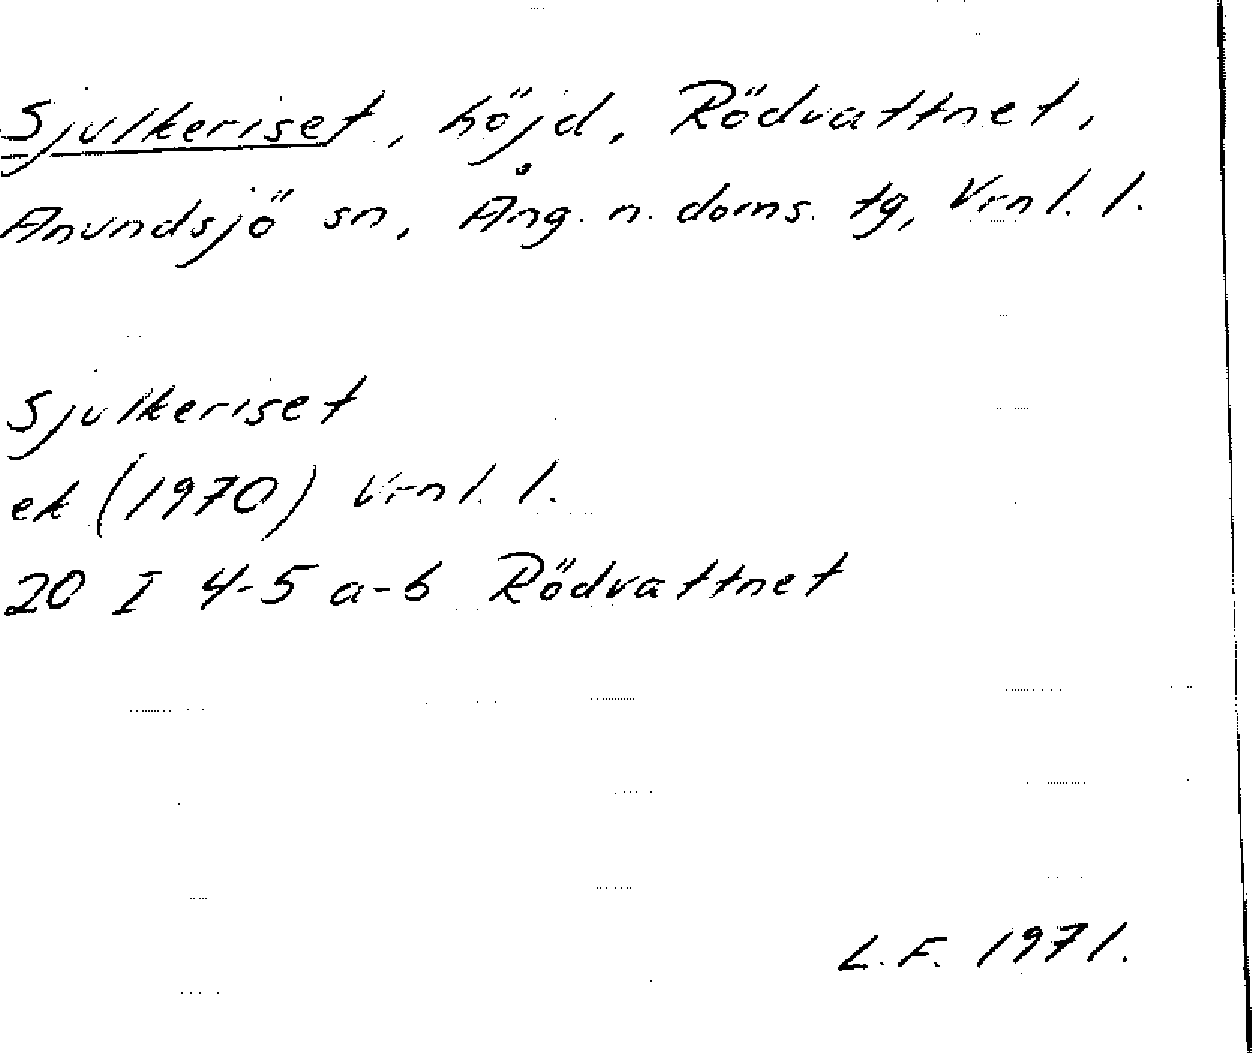 Sjulkeriset, höjd, Rödvattnet,
Anundsjö sn, Ång. n. doms. tg, Vrnl. l.
Sjulkeriset
ek (1970) Vrnl. l.
20 I 4-5 a-b Rödvattnet
L.F. 1971.